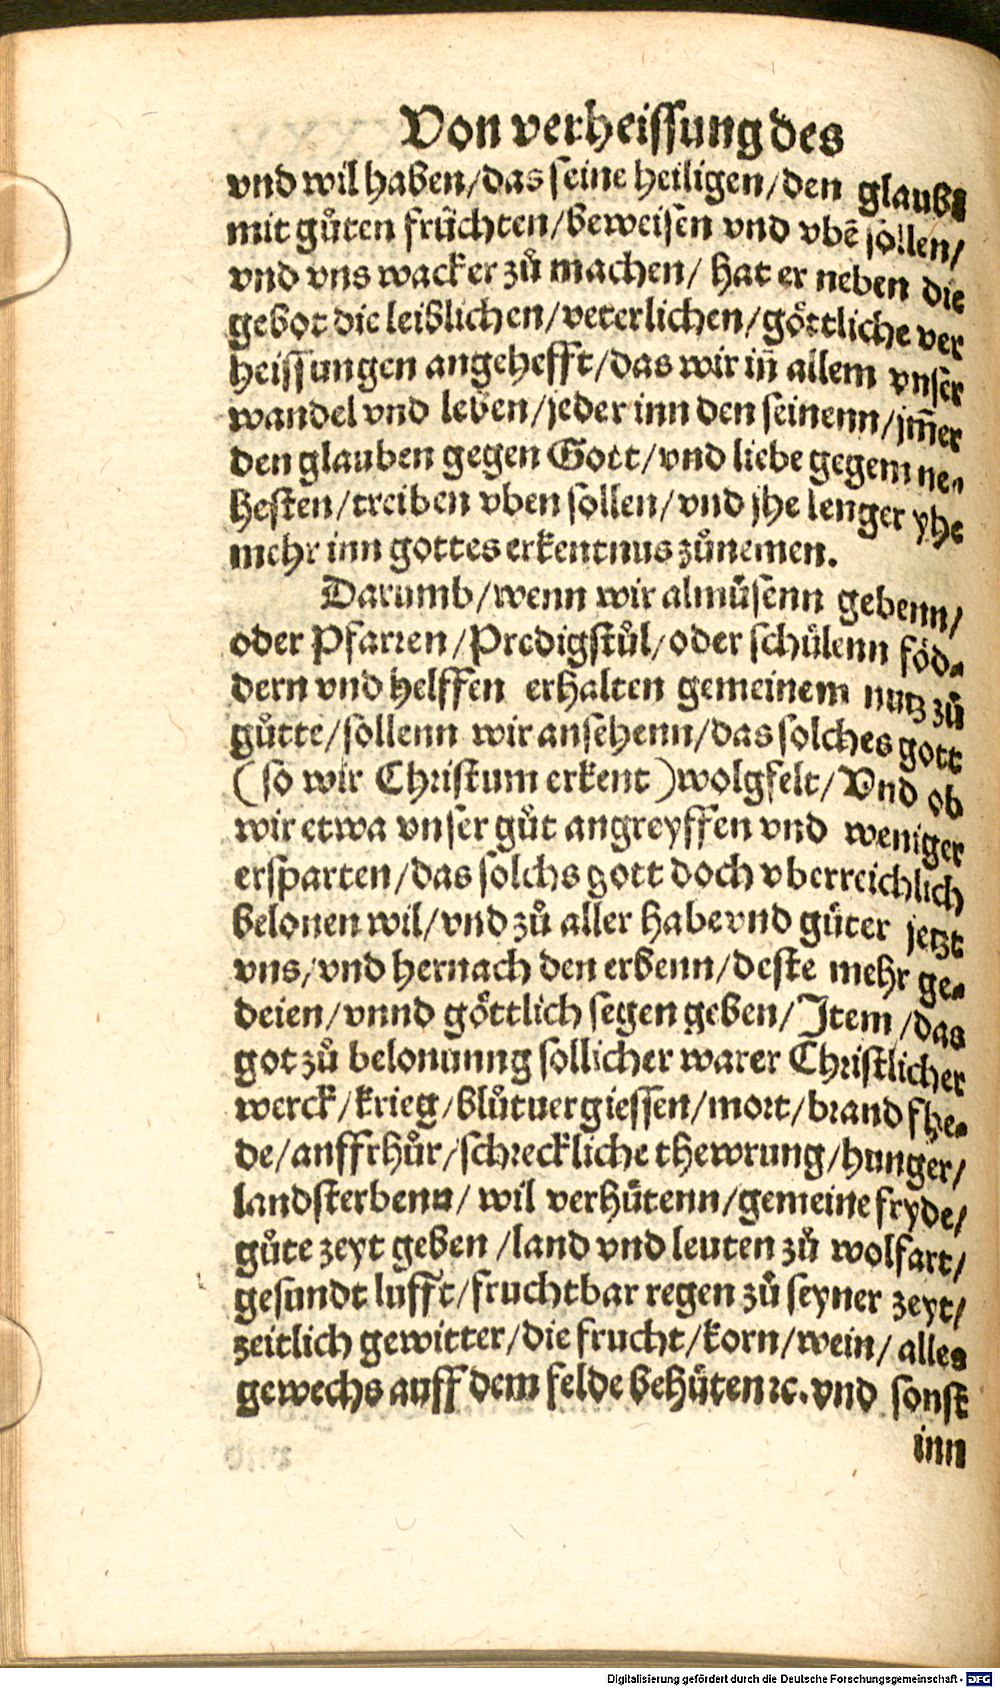 Von verheissung des
vnd wil haben/das seine heiligen/den glaubē
mit gůten früchten/beweisen vnd vbē sollen/
vnd vns wacker zů machen/ hat er neben die
gebot die leiblichen/veterlichen/göttliche ver
heissungen angehefft/das wir in̄ allem vnser
wandel vnd leben/jeder inn den seinenn/jm̄er
den glauben gegen Gott/vnd liebe gegem ne-
hesten/treiben vben sollen/vnd jhe lenger yhe
mehr inn gottes erkentnus zůnemen.
Darumb/wenn wir almůsenn gebenn/
oder Pfarren/Predigstůl/oder schůlenn föd-
dern vnd helffen erhalten gemeinem nutz zů
gůtte/sollenn wir ansehenn/das solches gott
(so wir Christum erkent)wolgfelt/Vnd ob
wir etwa vnser gůt angreyffen vnd weniger
ersparten/das solchs gott doch vberreichlich
belonen wil/vnd zů aller habe vnd güter jetzt
vns/vnd hernach den erbenn/deste mehr ge-
deien/vnnd göttlich segen geben/Item/das
got zů belonunng sollicher warer Christlicher
werck/krieg/blůtuergiessen/mort/brand fhe-
de/auffrhůr/schreckliche thewrung/hunger/
landsterbenn/ wil verhütenn/gemeine fryde/
gůte zeyt geben /land vnd leuten zů wolfart/
gesundt lufft/fruchtbar regen zů seyner zeyt/
zeitlich gewitter/die frucht/korn/wein/ alles
gewechs auff dem felde behüten ꝛc. vnd sonst
inn
Digitalisierung gefördert durch die Deutsche Forschungsgemeinschaft - DFG